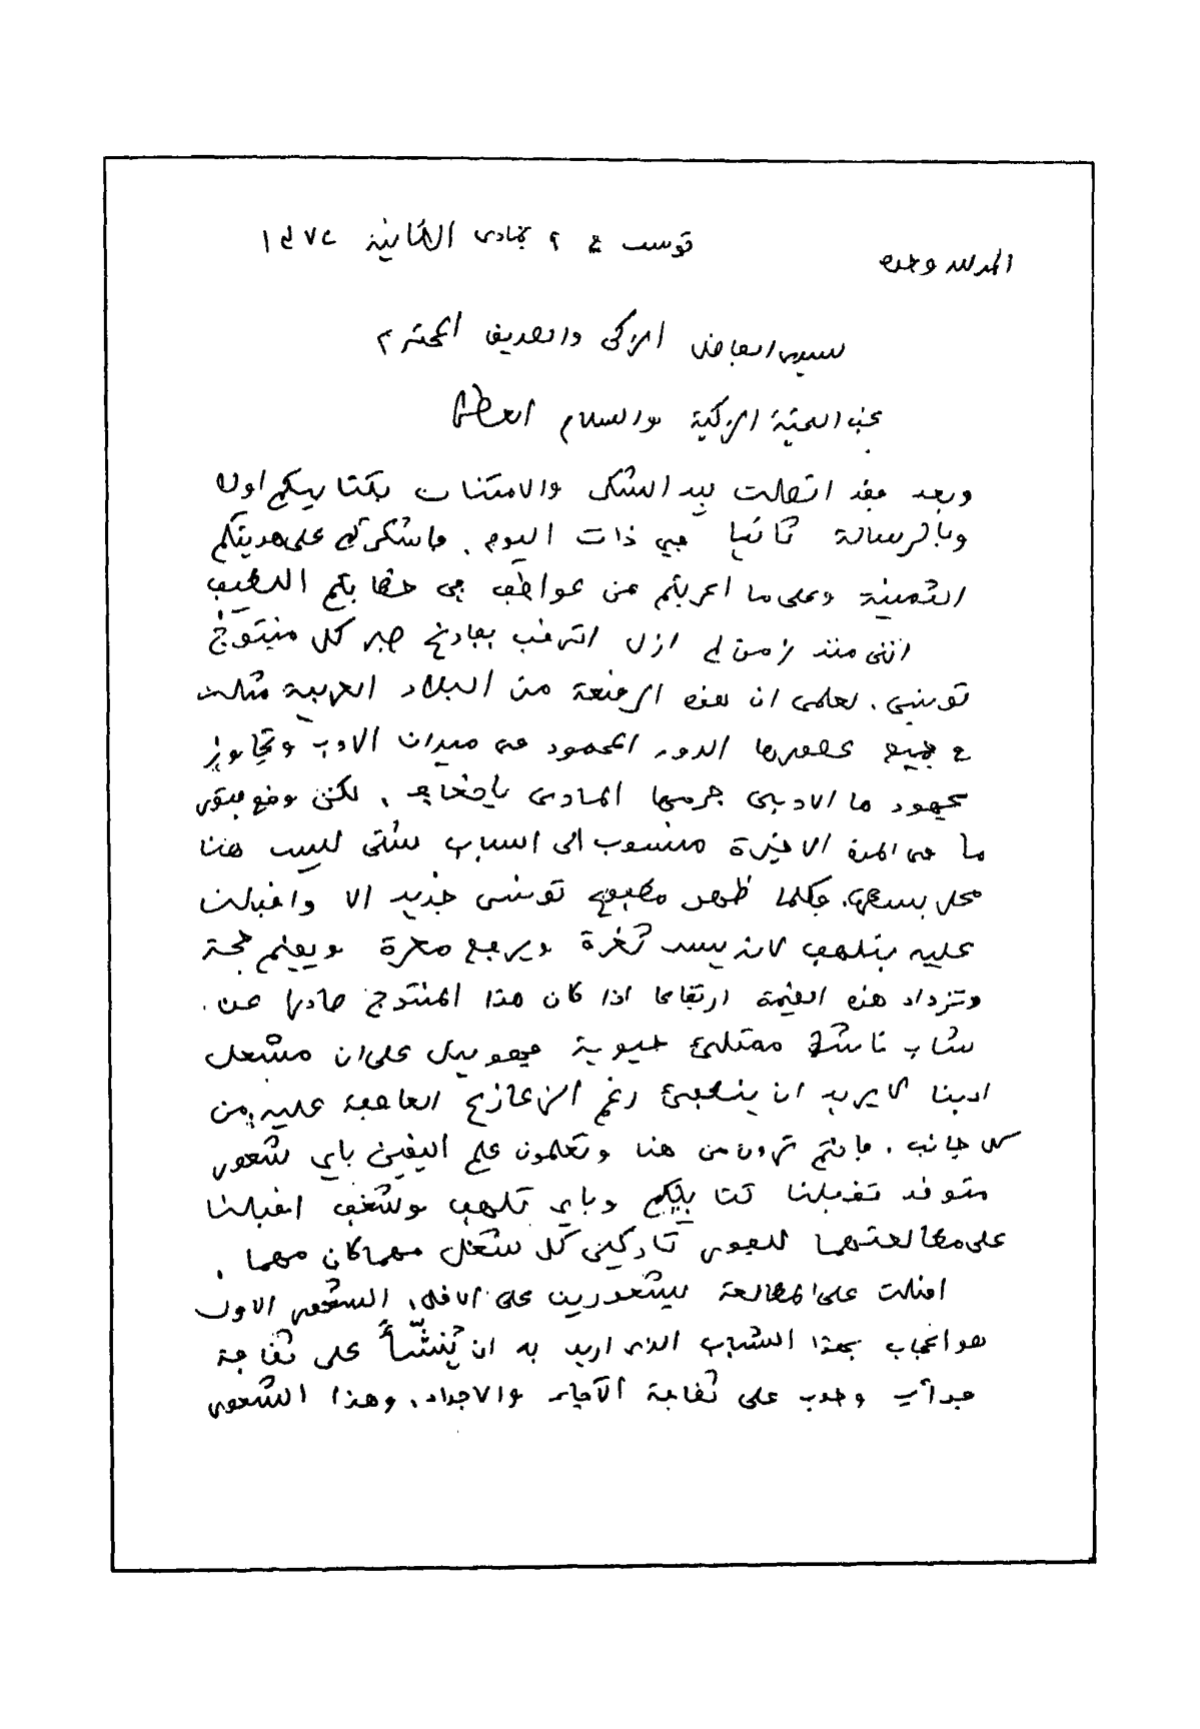 الحمد لله وحده
تونس في 2 جمادى الثانية
سيدي الفاضل الزكي والصديق المحترم
بعد التحية الزكية والسلام
وبعد فقد اتصلت بيد الشكر والامتنان بكتابيكم اولا
وبالرسالة ثانيا في ذات اليوم. فاشكركم على هديتكم
الثمينة وعلى ما اعربتم من عواطف في خطابكم اللطيف
انني منذ زمن لم ازل اترقب بفارغ صبر كل منتوج
تونسي. لعلمي ان هذه الرقعة من البلاد العربية مثلت
في جميع عصورها الدور المحمود في ميدان الادب وتجاوز
مجهودها الادبي جرمها المادي باضعاف. لكن وقع فتور
ما في المدة الاخيرة منسوب الى اسباب شتى ليس هنا
محل بسطها. فكلما ظهر مطبوع تونسي جديد الا واقبلت
عليه بتلهف لانه يسد ثغرة ويرفع معرة ويقيم حجة
وتزداد هذه القيمة ارتفاعا اذا كان هذا المنتوج صادرا عن
شاب ناشئ ممتلئ حيوية فهو يدل على ان مشعل
ادبنا لا يريد ان ينطفئ رغم الزعازع العاصفة عليه من
كل جانب. فانتم ترون من هنا وتعلمون علم اليقين باي شعور
متوقد تقبلنا كتابيكم وباي تلهف وشغف اقبلنا
على مطالعتهما للفور تاركين كل شغل مهما كان مهما.
اقبلت على المطالعة بشعورين على الاقل. الشعور الاول
هو اعجاب بهذا الشباب الذي اريد به ان يُنشّأ على ثقافة
فدأب وحدب على ثقافة الآباء والاجداد. وهذا الشعور